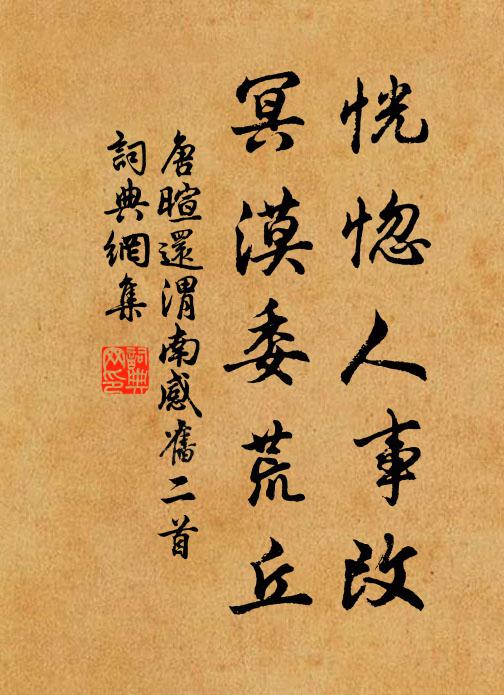 恍惚人事改
冥漠委荒丘
唐暄還渭南感舊二首
詞典網集
詞典网印